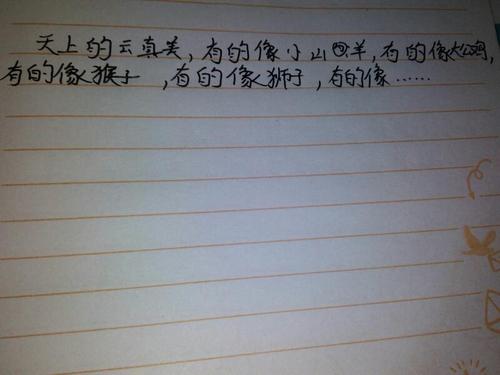 天上的云真美，有的像小山羊，有的像大公鸡，
有的像猴子，有的像狮子，有的像……